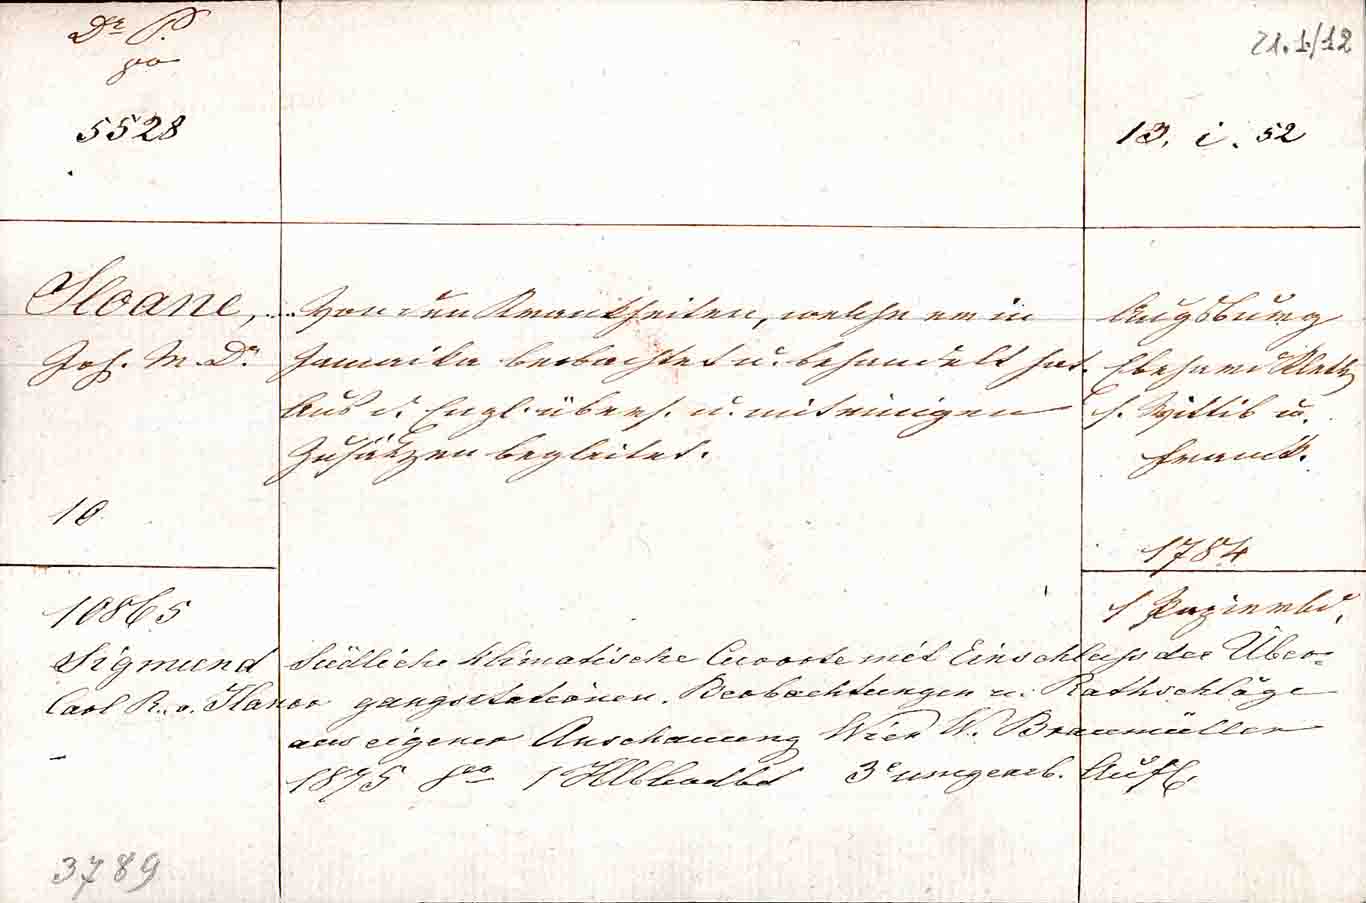 Dr. P.
8vo
5528
21.1/12
13. i. 52
Sloane,
Joh. M. Dr.
10
Von den Krankheiten, welche er in
Jamaika beobachtet u. behandelt hat.
Aus d. Engl. übers. u. mit einigen
Zusätzen begleitet.
Augsburg
Eberhard Klett
s. Wittib u.
Franck.
1784
1 Papierbd.
10865
Sigmund
Carl R. v. Ilanor
Südliche klimatische Curorte mit Einschluss der Über-
gangsstationen. Beobachtungen u. Rathschläge
aus eigener Anschauung Wien W. Braumüller
1875 8vo 1 3e umgearb. Aufl.
3789